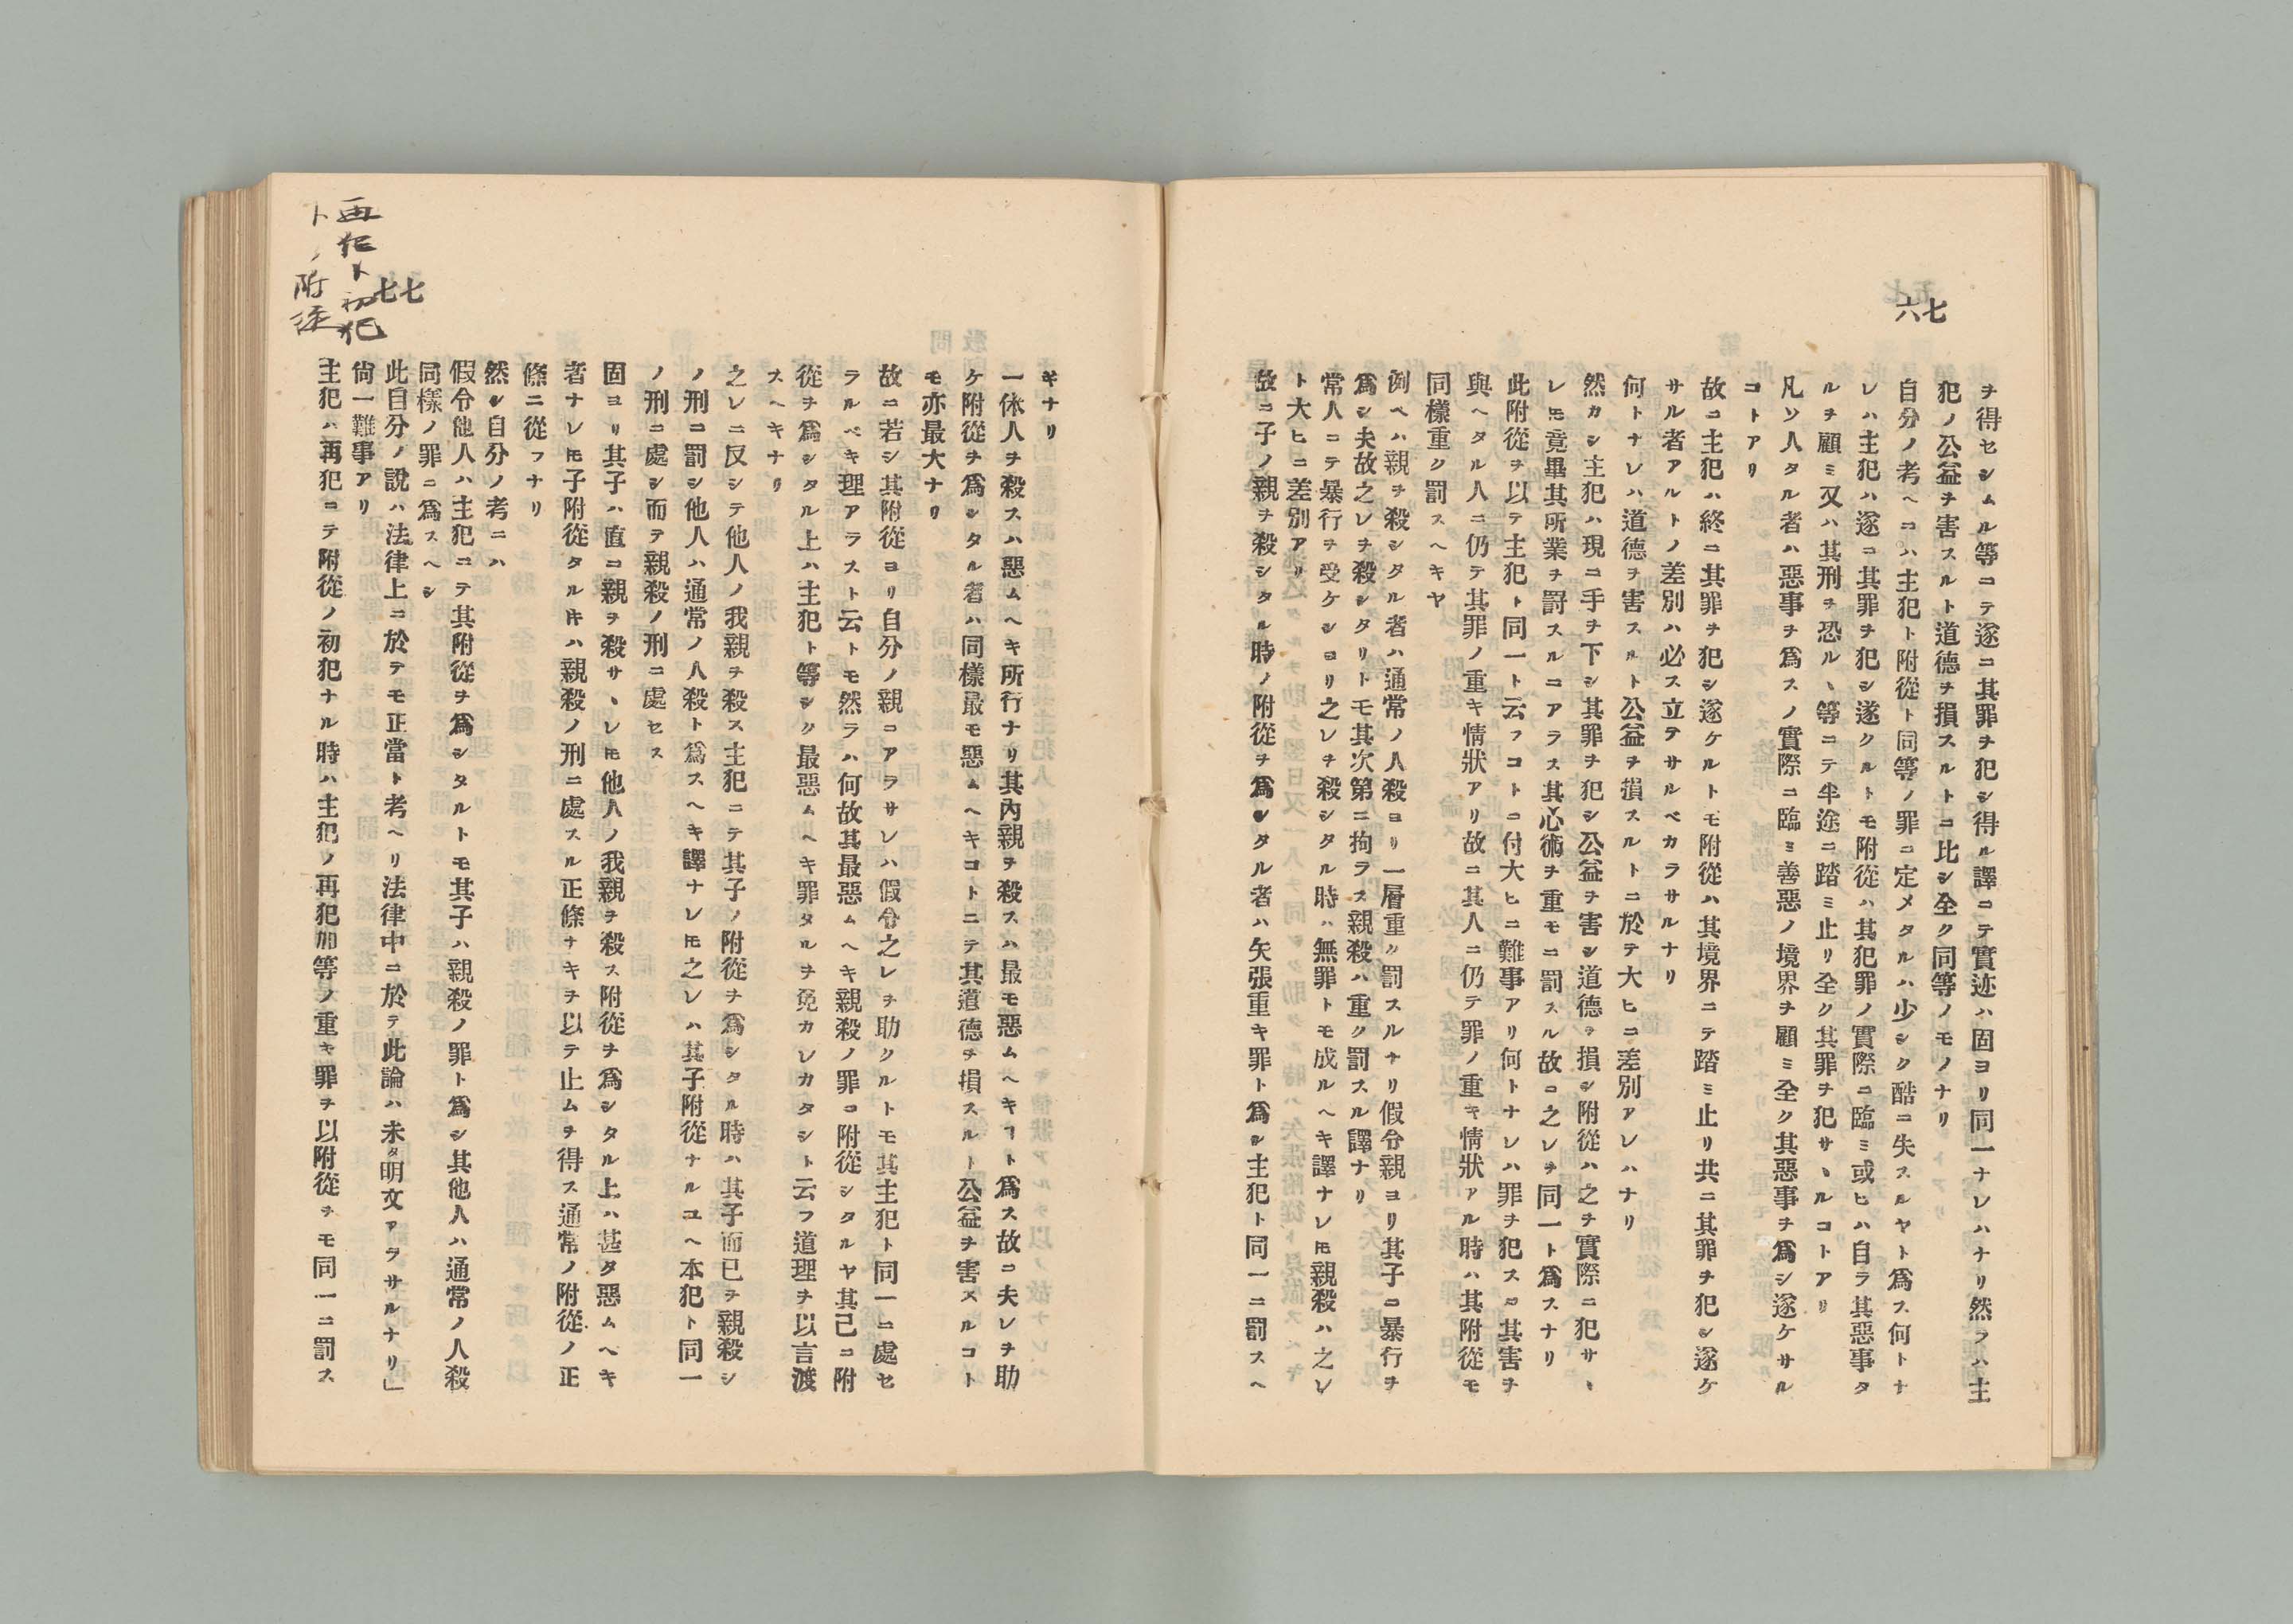 七六
ヲ得セシムル等ニテ遂ニ其罪ヲ犯シ得ル譯ニテ實迹ハ固ヨリ同一ナレハナリ然ラハ主
犯ノ公益ヲ害スルト道德ヲ損スルトニ比シ全ク同等ノモノナリ
自分ノ考ヘニハ主犯ト附從ト同等ノ罪ニ定メタルハ少シク酷ニ失スルヤト爲ス何トナ
レハ主犯ハ遂ニ其罪ヲ犯シ遂クルトモ附從ハ其犯罪ノ實際ニ臨ミ或ヒハ自ラ其惡事タ
ルヲ顧ミ又ハ其刑ヲ恐ルヽ等ニテ半途ニ踏ミ止リ全ク其罪ヲ犯サヽルコトアリ
凡ソ人タル者ハ惡事ヲ爲スノ實際ニ臨ミ善惡ノ境界ヲ顧ミ全ク其惡事ヲ爲シ遂ケサル
コトアリ
故ニ主犯ハ終ニ其罪ヲ犯シ遂ケルトモ附從ハ其境界ニテ踏ミ止リ共ニ其罪ヲ犯シ遂ケ
サル者アルトノ差別ハ必ス立テサルベカラサルナリ
何トナレハ道德ヲ害スルト公益ヲ損スルトニ於テ大ヒニ差別アレハナリ
然カシ主犯ハ現ニ手ヲ下シ其罪ヲ犯シ公益ヲ害シ道德ヲ損シ附從ハ之ヲ實際ニ犯サヽ
レ𪜈竟畢其所業ヲ罸スルニアラス其心術ヲ重モニ罰スル故ニ之レヲ同一ト爲スナリ
此附從ヲ以テ主犯ト同一ト云フコトニ付大ヒニ難事アリ何トナレハ罪ヲ犯スニ其害ヲ
與ヘタル人ニ仍テ其罪ノ重キ情狀アリ故ニ其人ニ仍テ罪ノ重キ情狀アル時ハ其附從モ
同樣重ク罰スヘキヤ
例ベハ親ヲ殺シタル者ハ通常ノ人殺ヨリ一層重ク罰スルナリ假令親ヨリ其子ニ暴行ヲ
爲シ夫故之レヲ殺シタリトモ其次第ニ拘ラス親殺ハ重ク罰スル譯ナリ
常人ニテ暴行ヲ受ケシヨリ之レヲ殺シタル時ハ無罪トモ成ルヘキ譯ナレ𪜈親殺ハ之レ
ト大ヒニ差別アリ
故ニ子ノ親ヲ殺シタル時ノ附從ヲ爲シタル者ハ矢張重キ罪ト爲シ主犯ト同一ニ罰スヘ
七七
キナリ
一休人ヲ殺スハ惡ムヘキ所行ナリ其內親ヲ殺スハ最モ惡ムヘキヿト爲ス故ニ夫レヲ助
ケ附從ヲ爲シタル者ハ同樣最モ惡ムヘキコトニテ其道德ヲ損スルト公益ヲ害スルコト
モ亦最大ナリ
故ニ若シ其附從ヨリ自分ノ親ニアラサレハ假令之レヲ助クルトモ其主犯ト同一ニ處セ
ラルベキ理アラスト云トモ然ラハ何故其最惡ムヘキ親殺ノ罪ニ附從シタルヤ其已ニ附
從ヲ爲シタル上ハ主犯ト等シク最惡ムヘキ罪タルヲ免カレカタシト云フ道理ヲ以言渡
スヘキナリ
之レニ反シテ他人ノ我親ヲ殺ス主犯ニテ其子ノ附從ヲ爲シタル時ハ其子而已ヲ親殺シ
ノ刑ニ罰シ他人ハ通常ノ人殺ト爲スヘキ譯ナレ𪜈之レハ其子附從ナルユヘ本犯ト同一
ノ刑ニ處シ而テ親殺ノ刑ニ處セス
固ヨリ其子ハ直ニ親ヲ殺サヽレ𪜈他人ノ我親ヲ殺ス附從ヲ爲シタル上ハ甚タ惡ムヘキ
者ナレ𪜈子附從タル𪜈ハ親殺ノ刑ニ處スル正條ナキヲ以テ止ムヲ得ス通常ノ附從ノ正
條ニ從フナリ
然シ自分ノ考ニハ
假令他人ハ主犯ニテ其附從ヲ爲シタルトモ其子ハ親殺ノ罪ト爲シ其他人ハ通常ノ人殺
同樣ノ罪ニ爲スヘシ
此自分ノ說ハ法律上ニ於テモ正當ト考ヘリ法律中ニ於テ此論ハ未タ明文アラサルナリ」
尙一難事アリ
主犯ハ再犯ニテ附從ノ初犯ナル時ハ主犯ノ再犯加等ノ重キ罪ヲ以附從ヲモ同一ニ罰ス
再犯ト初犯
トノ附從